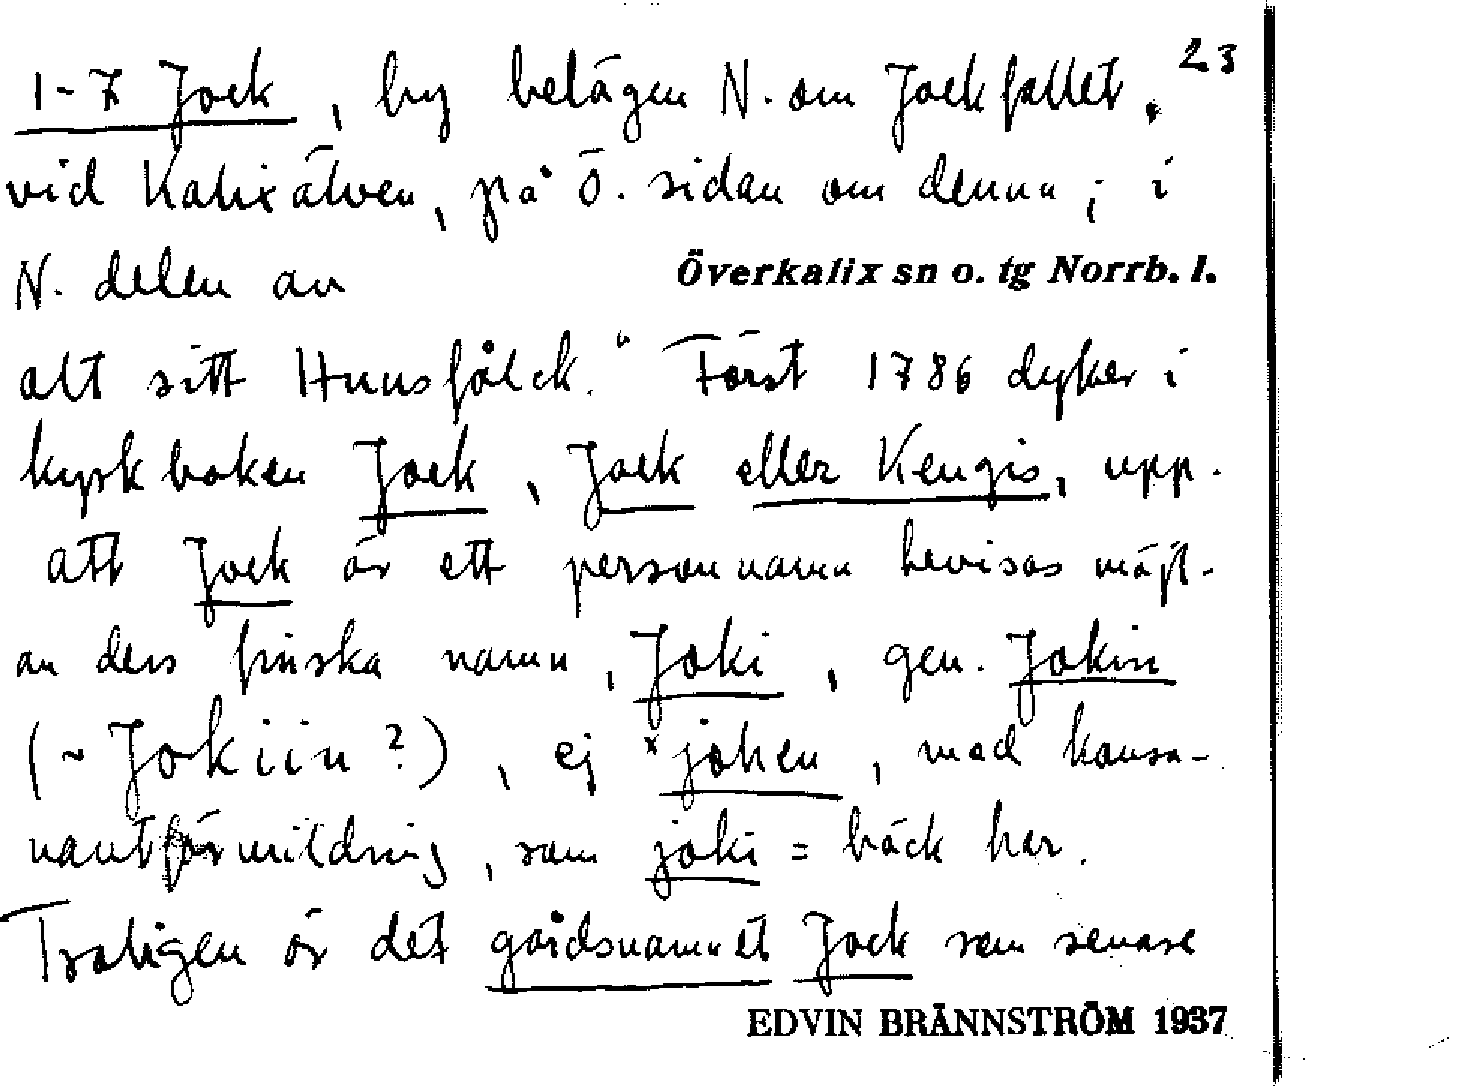 23
1-7 Jock, by belägen N. om Jockfallet,
vid Kalixälven, på Ö. sidan om denna; i
N. delen av
Överkalix sn o. tg Norrb. l.
alt sitt Huusfålck." Först 1786 dyker i
kyrkboken Jock, Jock eller Kengis, upp.
att Jock är ett personnamn bevisas möjl.
av dess finska namn, Joki, gen. Jokin
(~ Jokiin?), ej ˣjohen, med konso-
nantförmildring, som joki = bäck har.
Troligen är det gårdsnamnet Jock som senare
EDVIN BRÄNNSTRÖM 1937